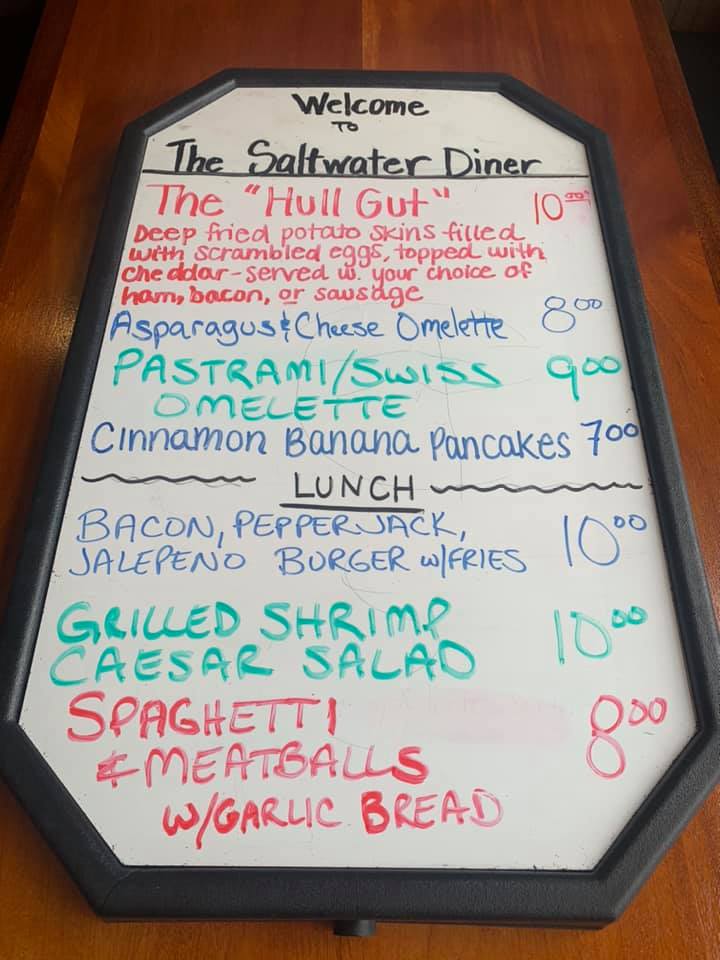 Welcome
TO
The Saltwater Diner
The "Hull Gut" 10.00
Deep fried potato skins filled
with scrambled eggs, topped with
cheddar-served w. your choice of
ham, bacon, or sausage
Asparagus & Cheese Omelette 8.00
PASTRAMI/SWISS 9.00
OMELETTE
Cinnamon Banana Pancakes 7.00
LUNCH
BACON, PEPPERJACK,
JALEPENO BURGER w/FRIES 10.00
GRILLED SHRIMP
CAESAR SALAD 10.00
SPAGHETTI 8.00
& MEATBALLS
W/GARLIC BREAD